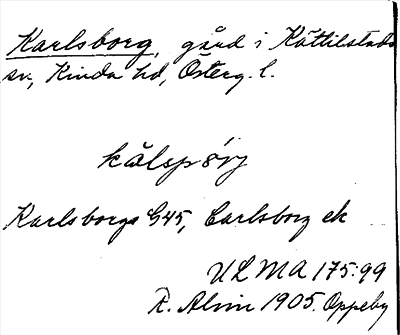 Karlsborg, gård i Kättilstads
sn, Kinda hd, Österg. l.
kålspörj
Karlsborgs G45, Carlsborg ek
ULMA 175:99
R. Alvin 1905. Oppeby